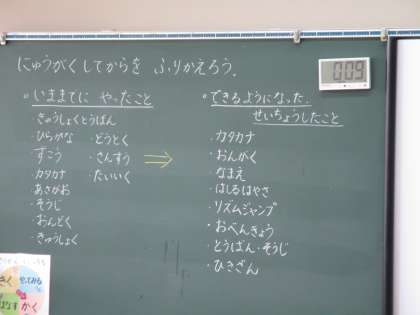 にゅうがくしてからを ふりかえろう.
○いままでに やったこと
きゅうしょくとうばん
・ひらがな ・どうとく
・ずこう ・さんすう
・カタカナ ・たいいく
・あさがお
・そうじ
・おんどく
・きゅうしょく
⇒
○できるようになった.
せいちょうしたこと
・カタカナ
・おんがく
・なまえ
・はしるはやさ
・リズムジャンプ
・おべんきょう
・とうばん・そうじ
・ひきざん
009
きく
やってみる
はなす
かく